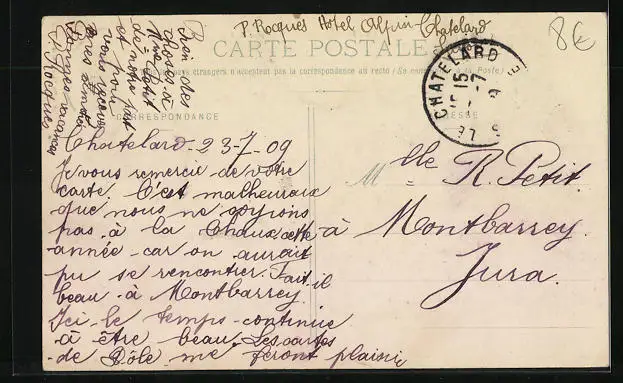 P. Rocques Hôtel Alpin-Chatelard
8€
CARTE POSTALE
pays étrangers n'acceptent pas la correspondance au recto
CORRESPONDANCE
CHATELARD
Chatelard - 23-7-09
Je vous remercie de votre
carte C'est malheureux
que nous ne
pas à la Chaux cette
année car on aurait
pu se rencontrer. Fait-il
beau à Montbarrey
Ici le temps continue
à être beau. Les cartes
de Dôle me feront plaisir
des
choses à
Mme Petit
de notre part
et pour
vous
vacances
Mlle R. Petit.
à Montbarrey.
Jura.